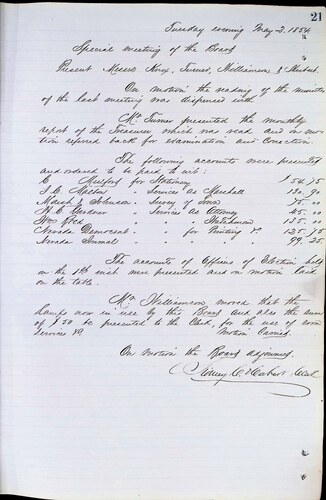 21
Tuesday evening May 2. 1854
Special meeting of the Board
Present Messrs King, Turner, Williamson &
On motion the reading of the minutes
of the last meeting was dispensed with
Mr. Turner presented the monthly
report of the Treasurer which was read and on mo-
tion refered back for examination and correction.
The following accounts were presented
and ordered to be paid to wit:
E Mulford for Stationery $54.75
" Services as Marshall 130.90
& Johnson " Survey of Town 75.00
H. C. Gardner " Services as Attorney 45.00
Wm " " " Watchman 115.00
Nevada Democrat " " for Printing &c. 125.75
Nevada Journal " " " 99.25
The accounts of Officers of Election held
on the 1st inst were presented and on motion laid
on the table.
Mr Williamson moved that the
Lamps now in use by this Board and also the sum
of $50 be presented to the Club, for the use of room
services &c Motion Carried.
On motion the Board adjourned.